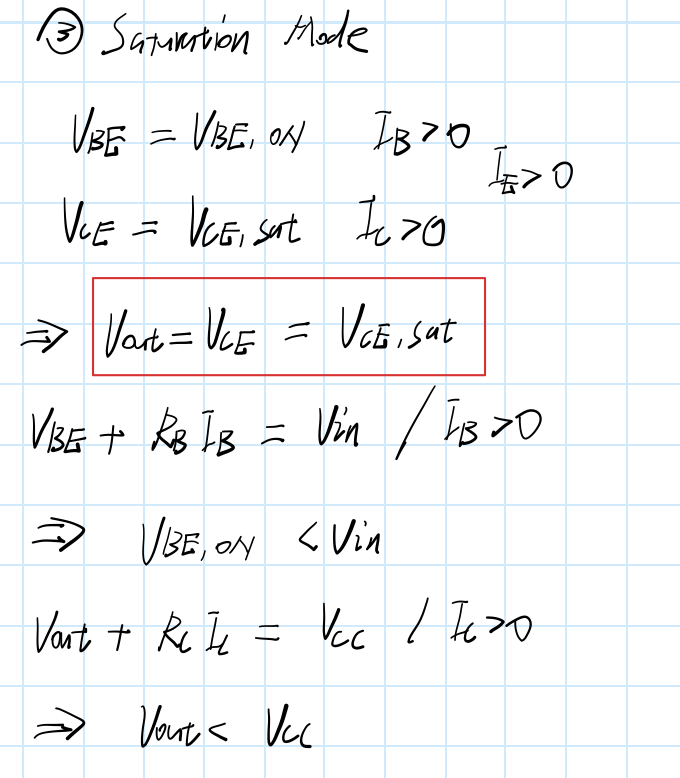 ③ Saturation Mode
V_BE = V_BE,ON I_B > 0
I_E > 0
V_CE = V_CE,sat I_C > 0
⇒ Vout = V_CE = V_CE,sat
V_BE + R_B I_B = Vin / I_B > 0
⇒ V_BE,ON < Vin
Vout + R_C I_C = V_CC / I_C > 0
⇒ Vout < V_CC